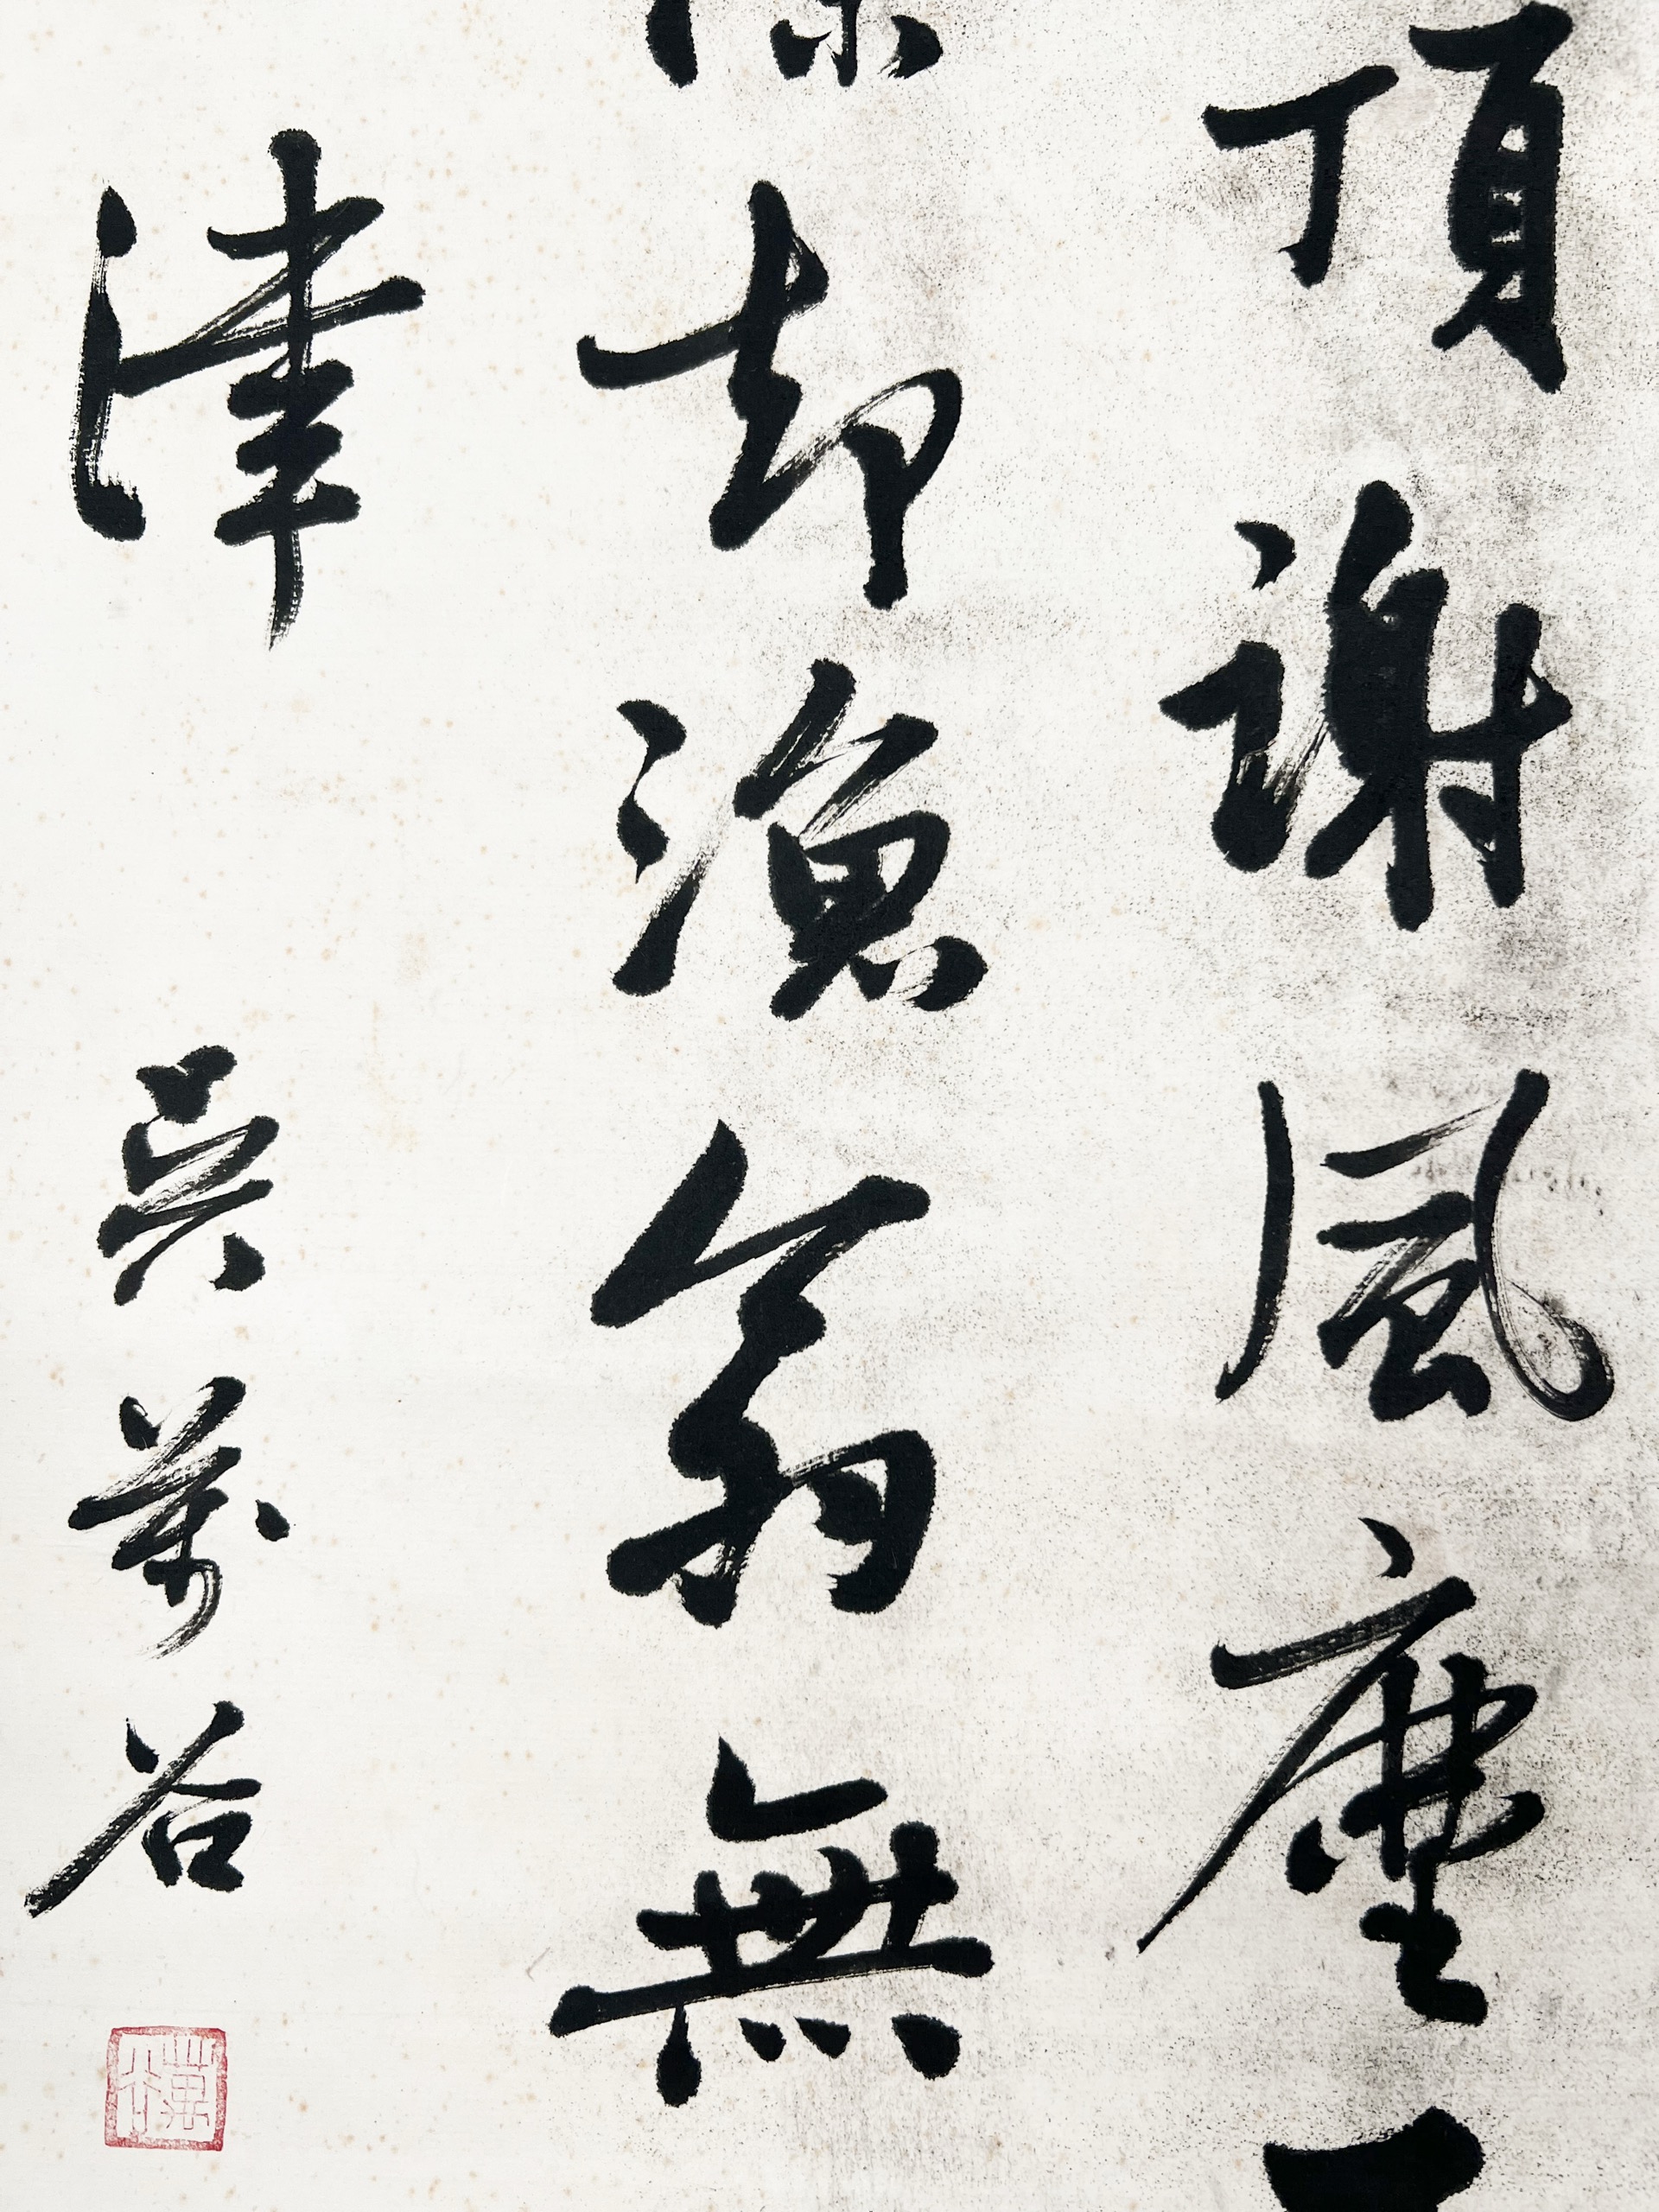 頂謝風塵
却漁翁無
津
吳萬谷